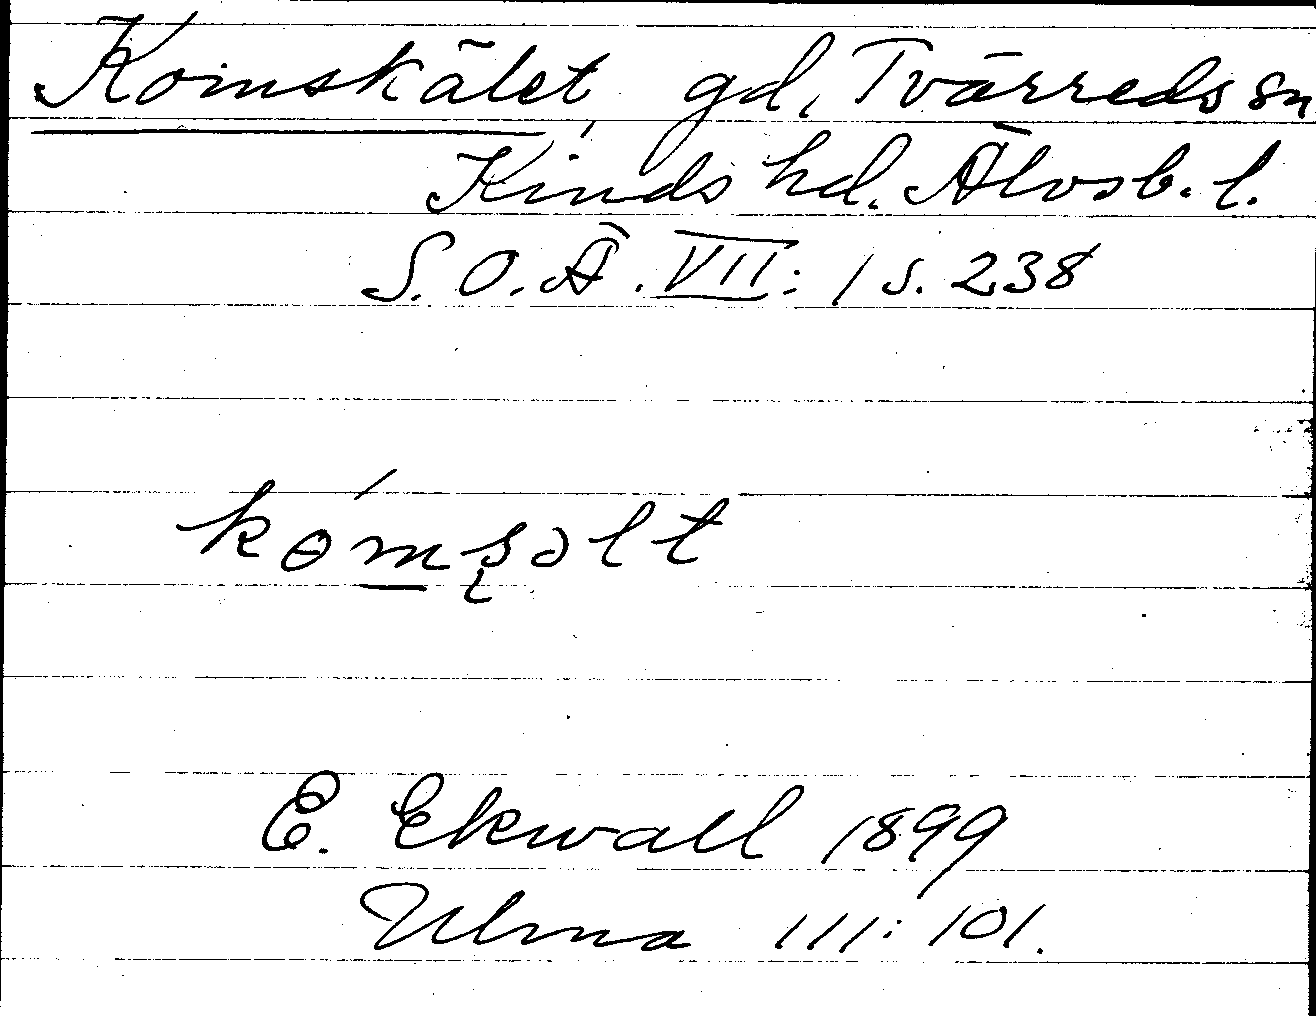 Komskälet, gd, Tvärreds sn
Kinds hd. Älvsb. l.
S. O. Ä. VII: 1 s. 238
kɵ́mʂəlt
E. Ekwall 1899
Ulma 111: 101.